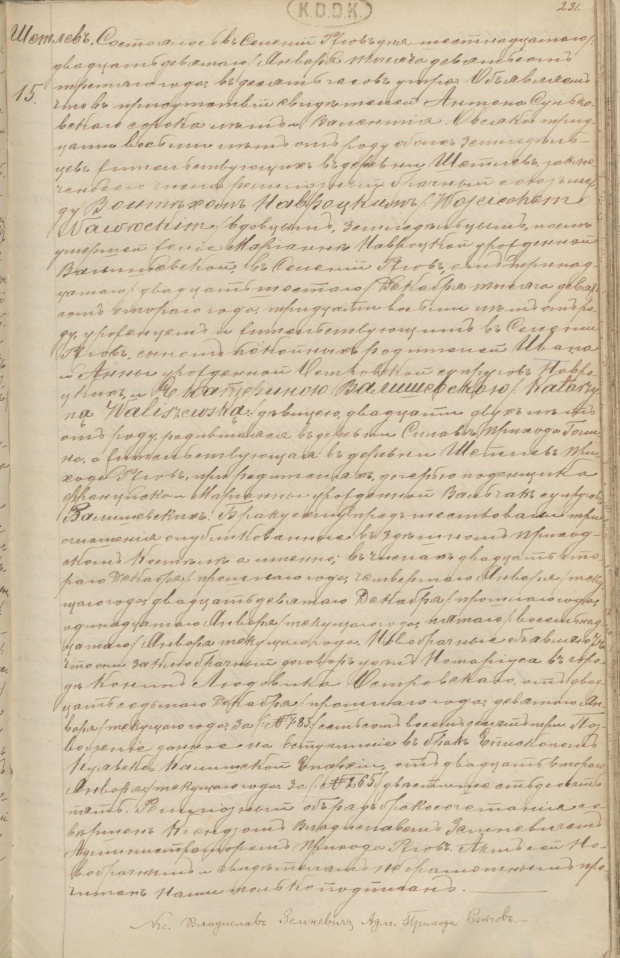 K.D.D.K.
231.
Щетлевъ. Состоялось въ Селеніи Ргове дня шестнадцатаго/
двадцать девятаго/ Января тысяча девятьсотъ
третьяго года въ десять часовъ утра. Объявляемъ
15.
что въ присутствіи свидѣтелей Антона
сорока лѣтъ и Валентія трид-
цати восьми лѣтъ отъ роду обоихъ земледѣль-
цевъ жительствующихъ въ деревни Щетлевъ, заклю-
ченъ сего числа религіозный брачный союзъ меж-
ду Войтѣхомъ Навроцкимъ /Wojciechem
Nawrockim/ вдовцомъ, земледѣльцемъ, послѣ
умершей женѣ Маріаннѣ Навроцкой урожденной
Валишевской, въ Селеніи Рговъ, тринад-
цатаго /двадцать шестаго/ Декабря тысяча девять-
сотъ втораго года, тридцати восьми лѣтъ отъ ро-
ду, урожденцемъ и жительствующимъ въ Селеніи
Рговъ, сыномъ покойныхъ родителей Ивана
и Анны урожденной Островской супруговъ Навро-
цкихъ, и Екатериною Валишевскою /Katarzy-
ną Waliszewską/ дѣвицею, двадцати двухъ лѣтъ
отъ роду, родившаяся въ деревни прихода
а жительствующая въ деревни Щетлевъ при-
хода Рговъ, при родителяхъ, дочерью поденщика
Франциска и Маріанны урожденной Вальчакъ супруговъ
Валишевскихъ. Браку сему предшествовали три
оглашенія опубликованныя въ здѣшномъ приход-
скомъ костелѣ а именно: въ числахъ двадцать вто-
раго Декабря /прошлаго года/ четвертаго Января /теку-
щаго года/ двадцать девятаго Декабря /прошлаго года/
одинадцатаго Января /текущаго года/ пятаго /восемнад-
цатаго/ Января текущаго года. Новобрачные объявили
что они заключили брачный договоръ у Нотаріуса въ горо-
дѣ Конинъ Людовика Островскаго, отъ двад-
цать седьмаго Декабря /прошлаго года/ девятаго Ян-
варя /текущаго года/ за /№ 783/ семьсотъ восемьдесятъ три. Поз-
воленіе данное на вступленіе въ бракъ Епископомъ
Куявско Калишской Епархіи, отъ двадцать втораго
Января текущаго года за /№ 265/ двѣсти шестьдесятъ
пять. Религіозный обрядъ бракосочетанія со-
вершенъ Ксендзомъ Владиславомъ Зенкевичемъ
Администраторомъ Прихода Рговъ. Актъ сей Но-
вобрачнымъ и свидѣтелямъ неграмотнымъ про-
читанъ Нами только подписанъ.
Кс. Владиславъ Зенкевичъ Адм. Прихода Ржговъ.